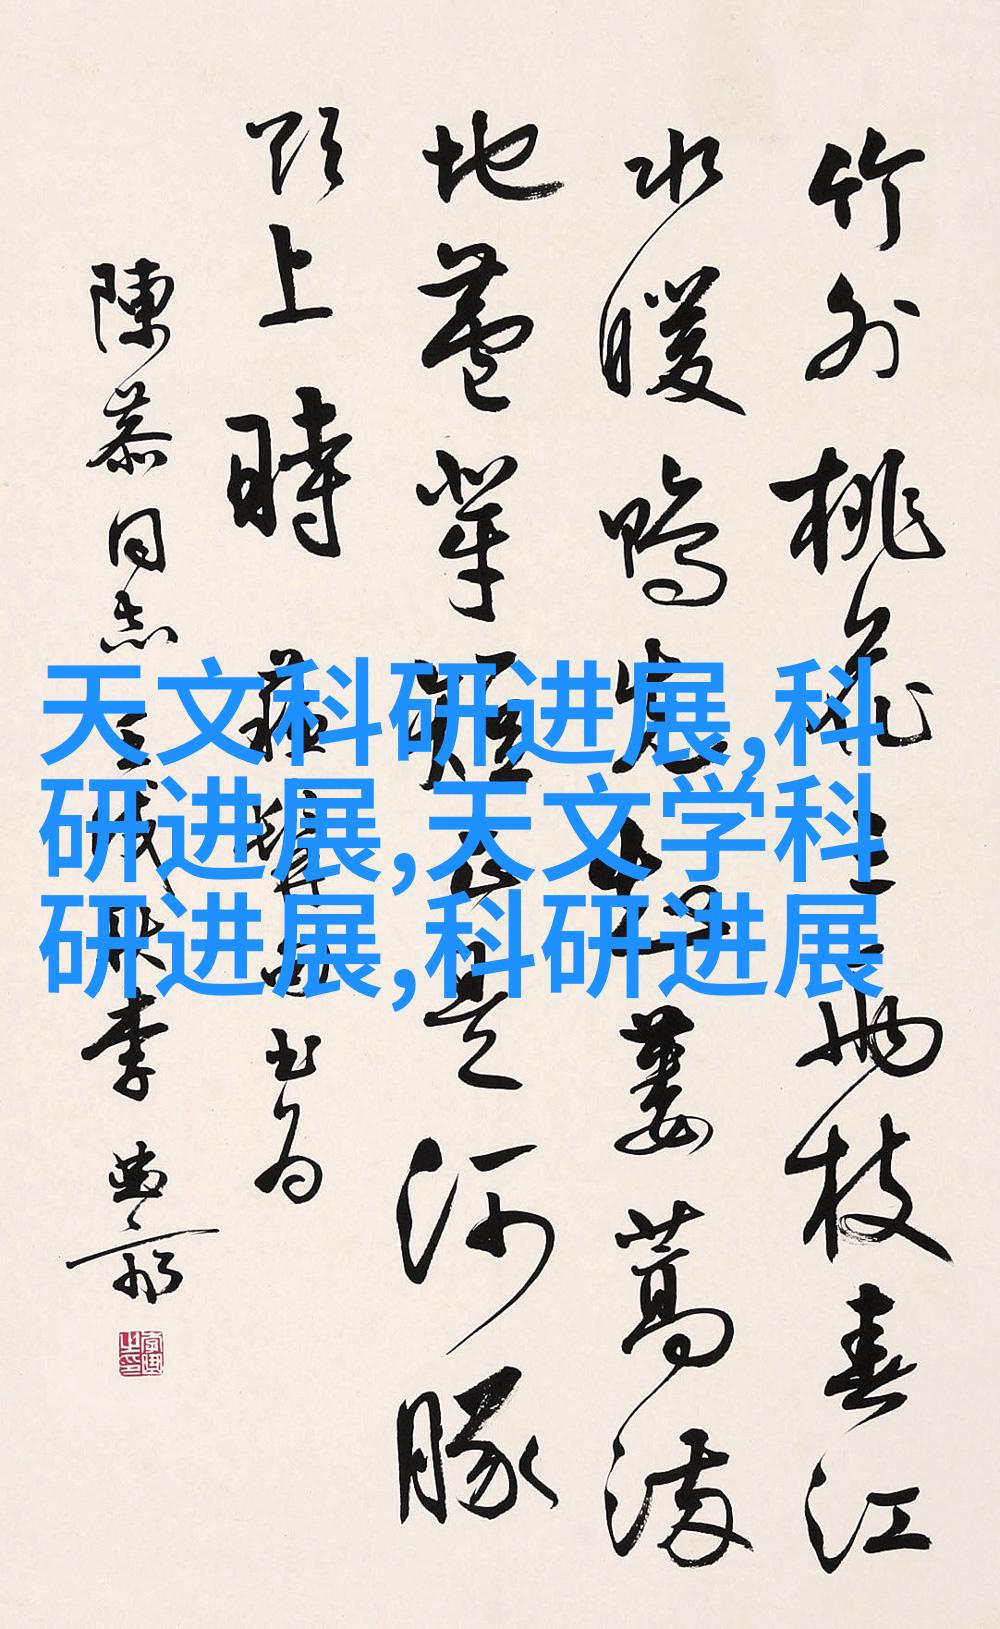 竹外桃花三兩枝春江
水暖鴨先知蔞蒿滿
地蘆芽短正是河豚
欲上時 蘇
陳恭同志 李
天文科研进展,科
研进展,天文学科
研进展,科研进展